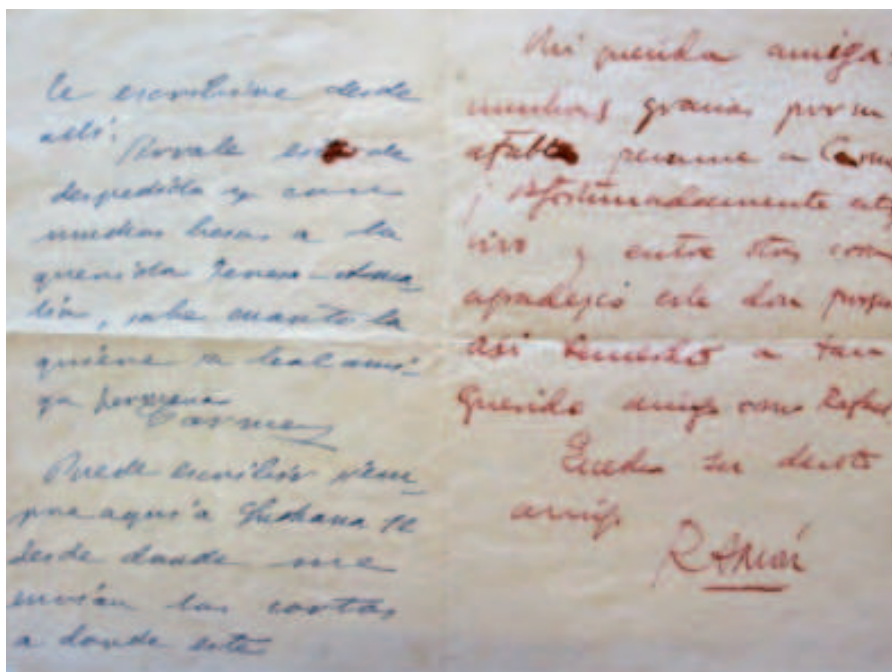 le escribiré desde
allí.
Sirvale esta de
despedida y con
muchos besos a la
querida Teresa-Ama-
lia, sabe cuanto la
quiere su leal ami-
ga
Carmen
Puede escribir siem-
pre aquí a
desde donde me
envían las cartas
a donde esté
Mi querida amiga:
muchas gracias por su
afable pesame a
¡Afortunadamente estoy
vivo y entre otras cosas
agradezco este don porque
asi
querido amigo como Rafael
Queda su
amigo
RAMÓN